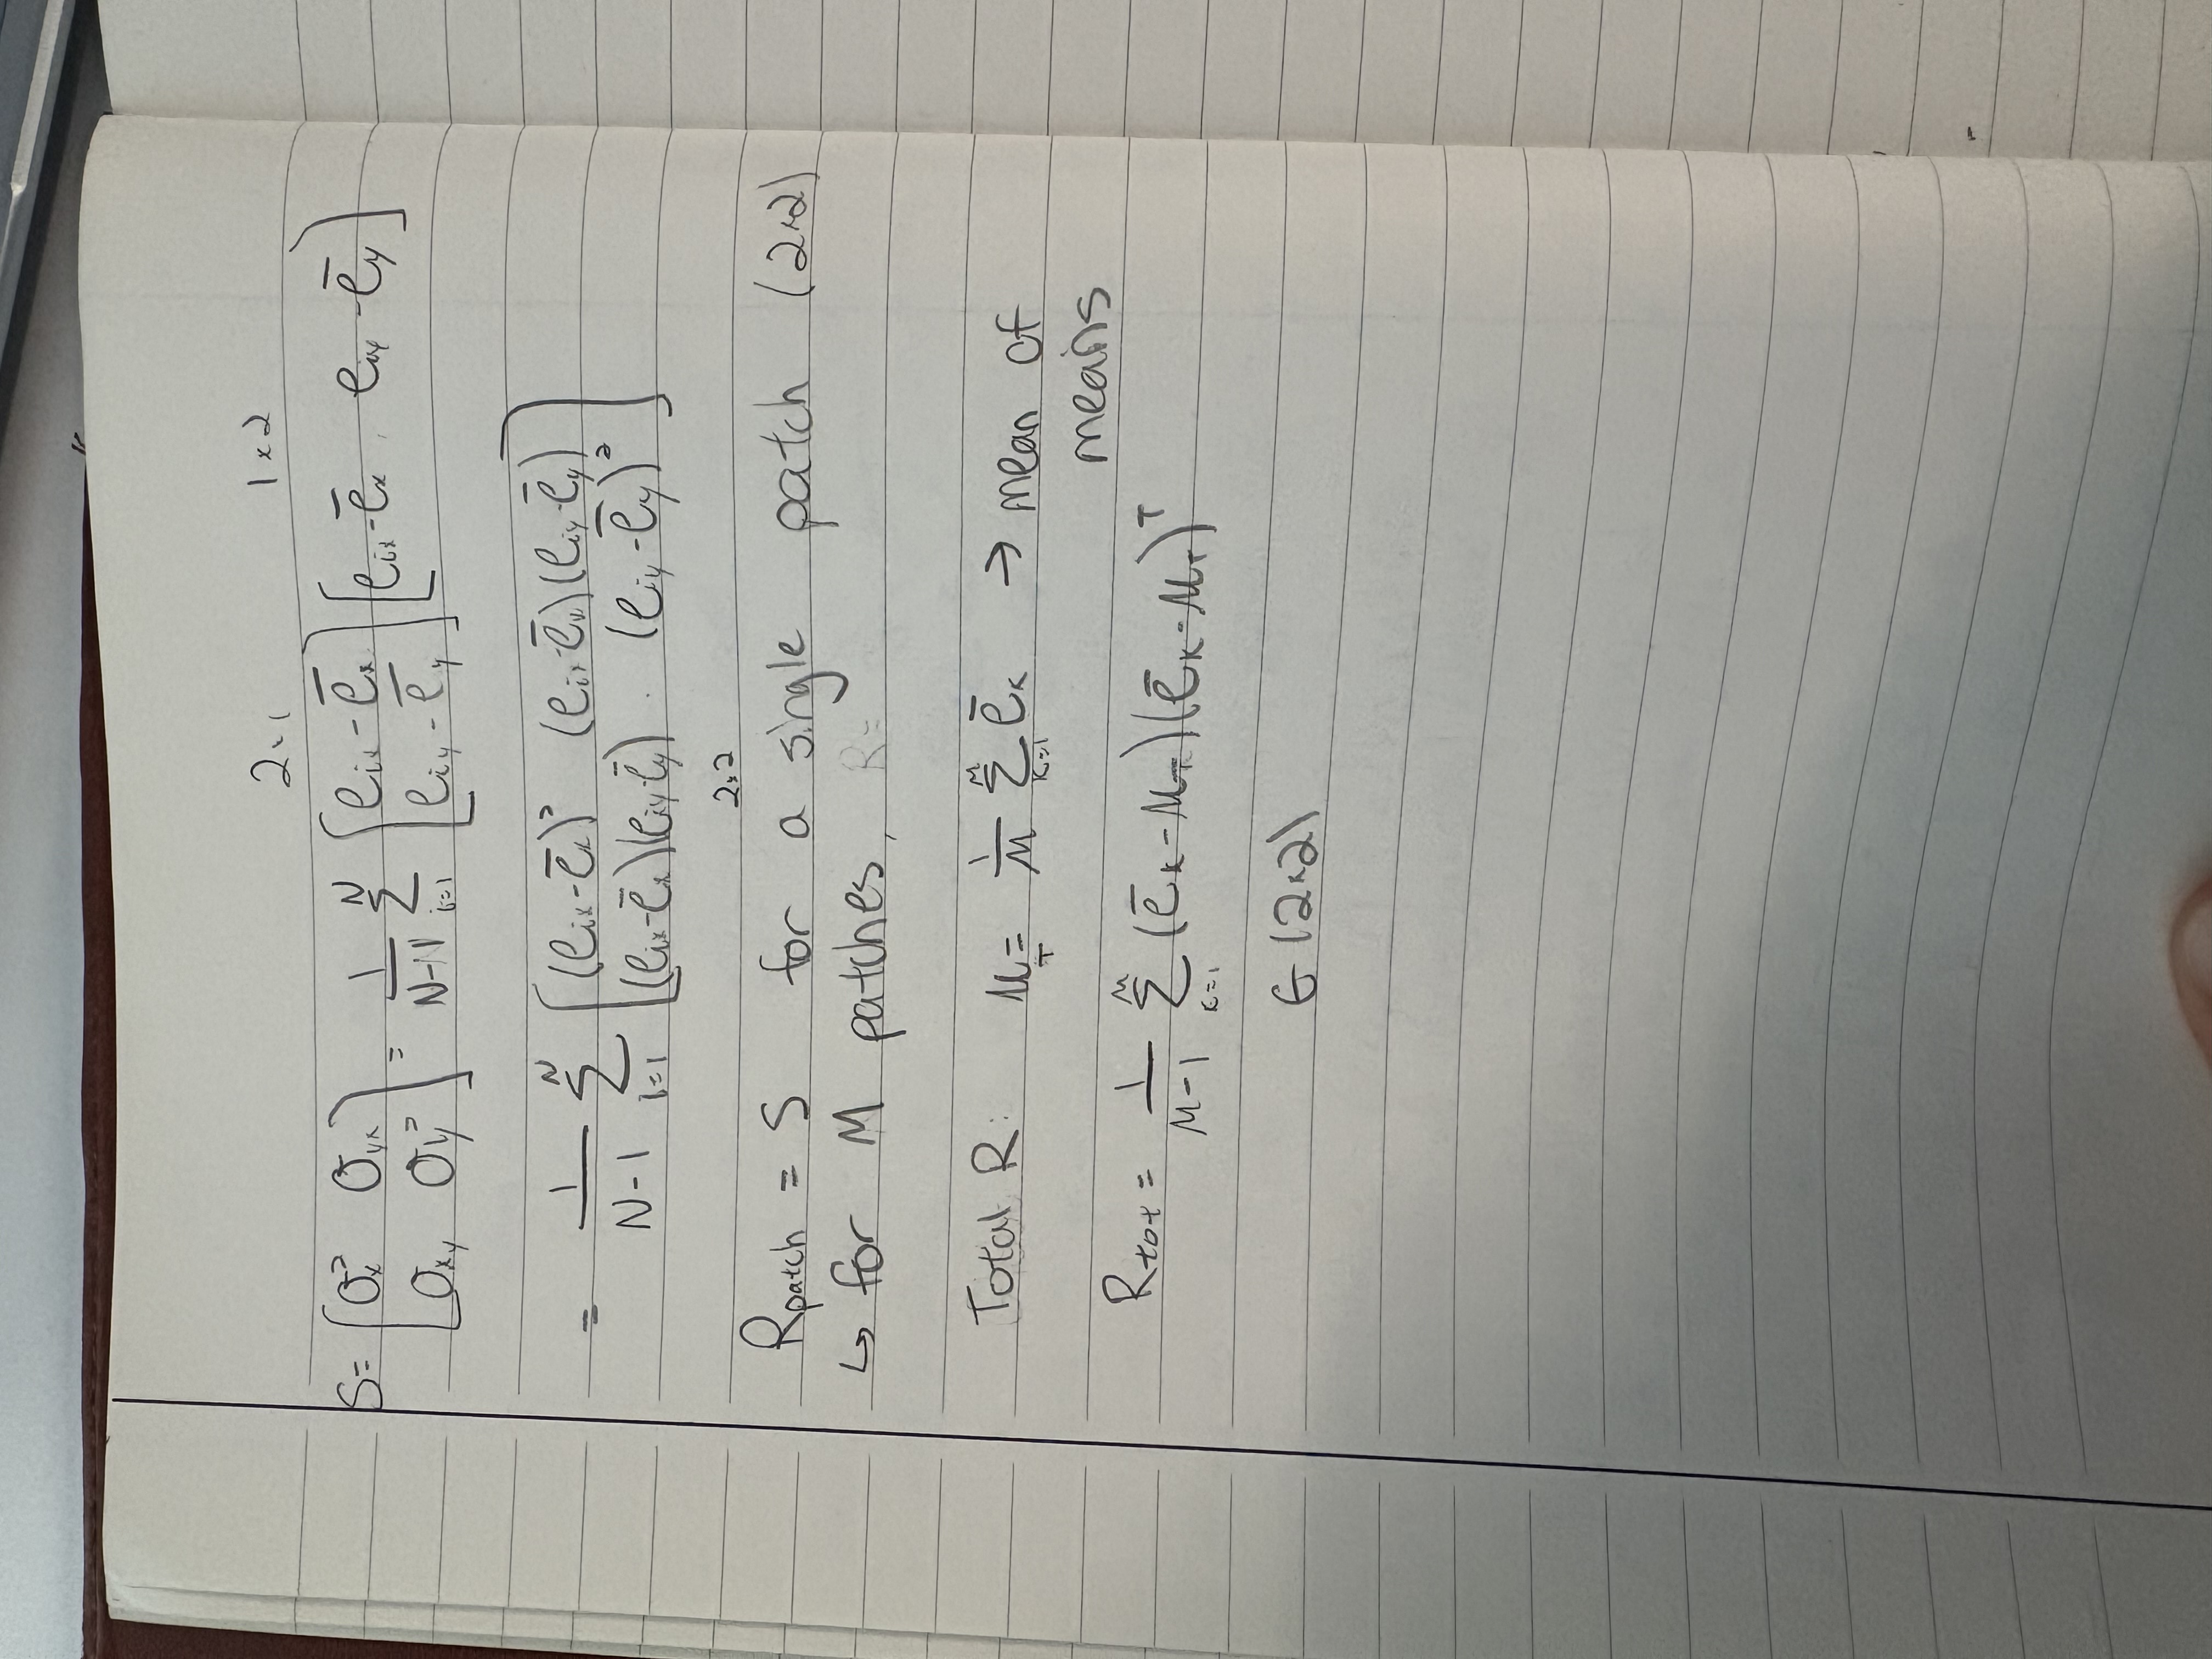 2×1 1×2
S = [σx² σyx; σxy σy²] = 1/(N-1) Σ_{i=1}^{N} [e_ix - ē_x; e_iy - ē_y] [e_ix - ē_x, e_iy - ē_y]
= 1/(N-1) Σ_{i=1}^{N} [(e_ix - ē_x)² (e_ix - ē_x)(e_iy - ē_y); (e_ix - ē_x)(e_iy - ē_y) (e_iy - ē_y)²]
2×2
Rpatch = S for a single patch (2×2)
↳ for M patches, R=
Total R: μ_T = 1/M Σ_{K=1}^{M} ē_K → mean of
means
R_tot = 1/(M-1) Σ_{K=1}^{M} (ē_K - μ_T)(ē_K - μ_T)^T
∈ (2×2)